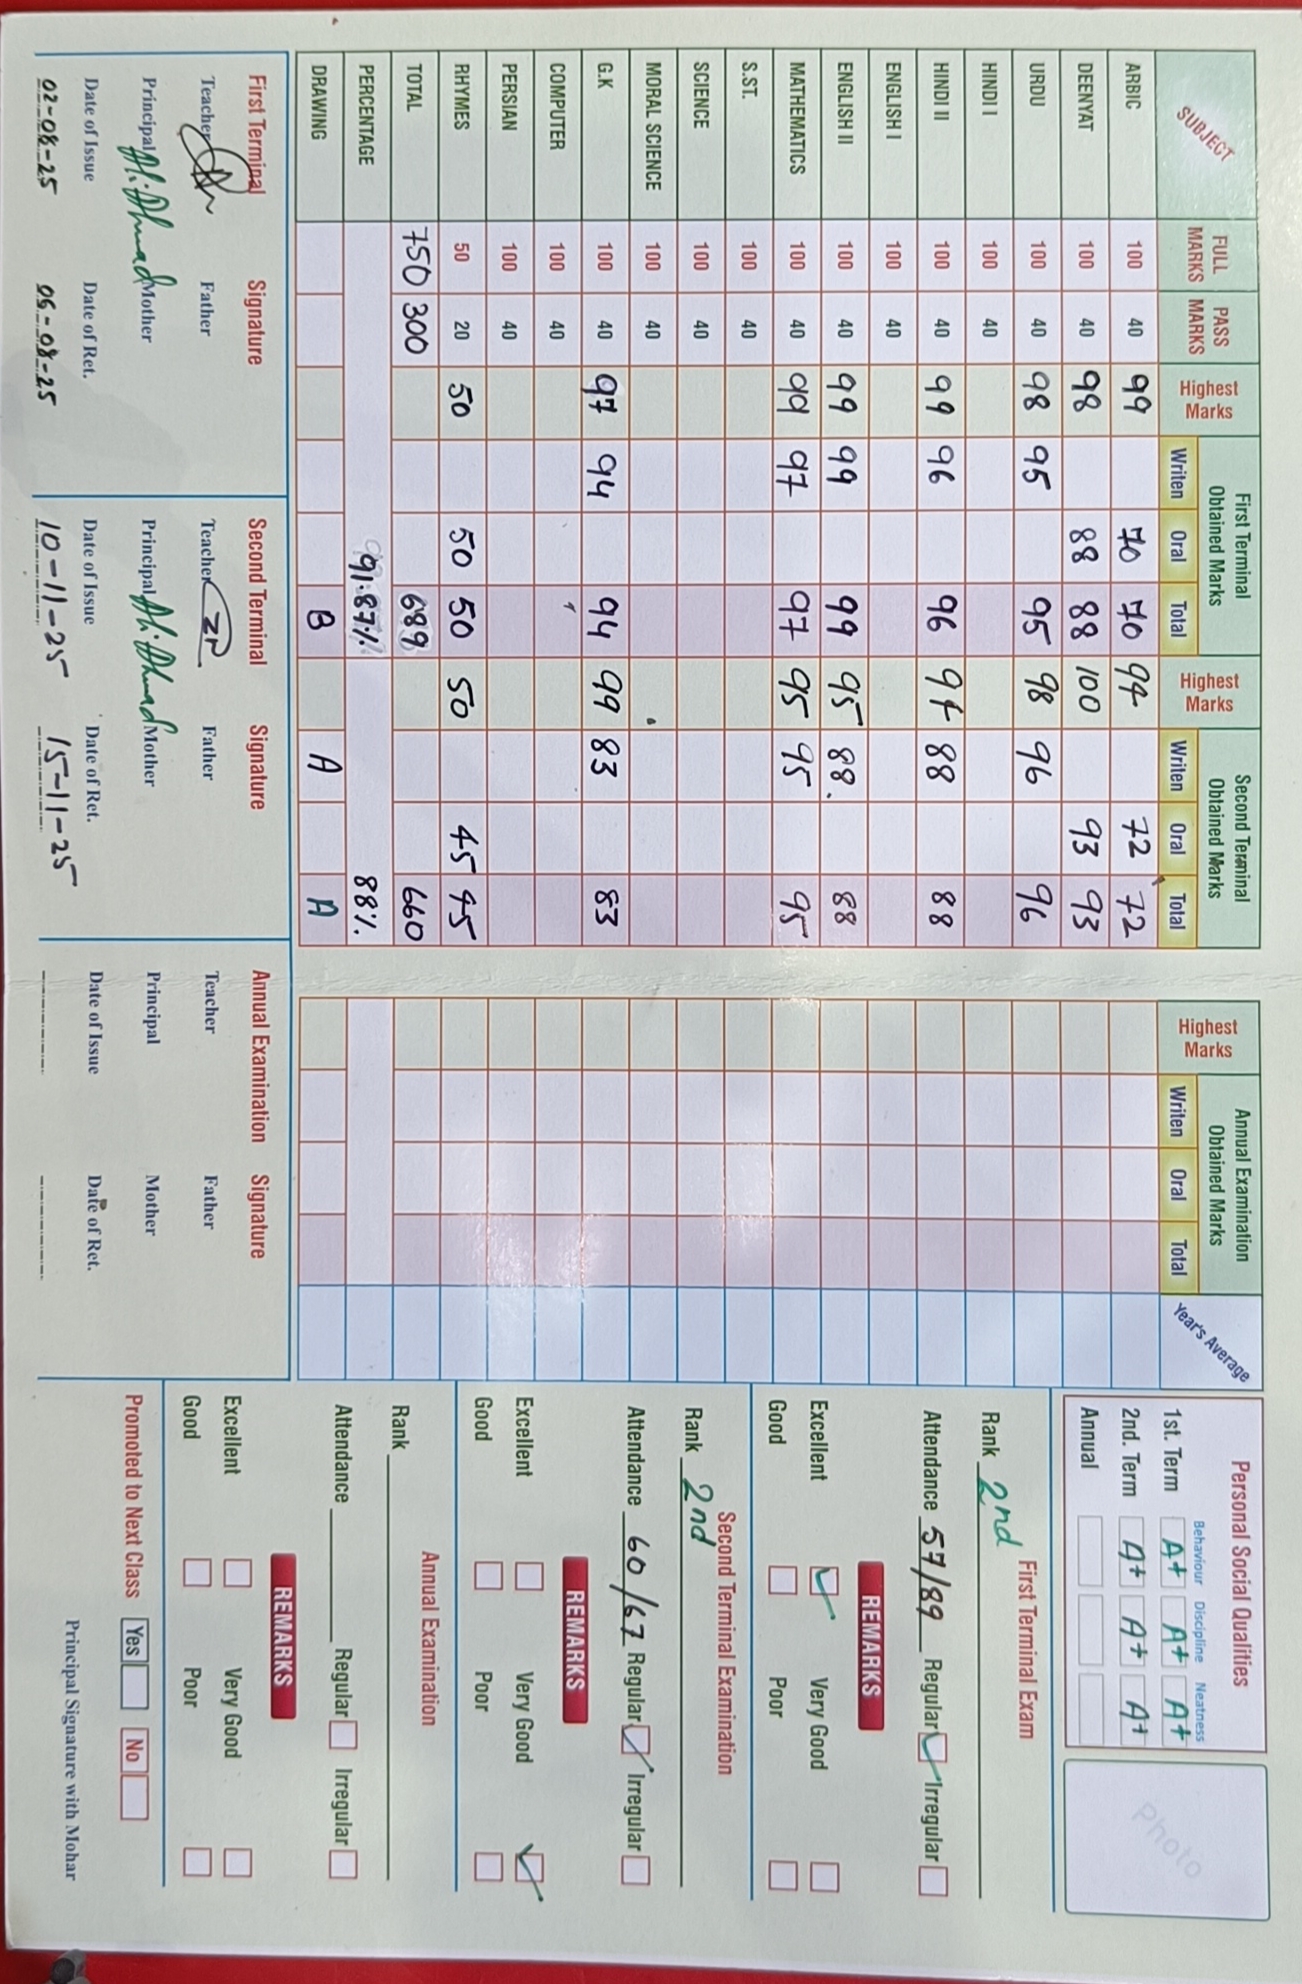 SUBJECT FULL MARKS PASS MARKS Highest Marks First Terminal Obtained Marks Writen Oral Total Highest Marks Second Terminal Obtained Marks Writen Oral Total Highest Marks Annual Examination Obtained Marks Writen Oral Total Year's Average
ARBIC 100 40 99 70 70 94 72 72
DEENYAT 100 40 98 88 88 100 93 93
URDU 100 40 98 95 95 98 96 96
HINDI I 100 40
HINDI II 100 40 99 96 96 94 88 88
ENGLISH I 100 40
ENGLISH II 100 40 99 99 99 95 88. 88
MATHEMATICS 100 40 99 97 97 95 95 95
S.ST. 100 40
SCIENCE 100 40
MORAL SCIENCE 100 40
G.K 100 40 97 94 94 99 83 83
COMPUTER 100 40
PERSIAN 100 40
RHYMES 50 20 50 50 50 50 45 45
TOTAL 750 300 689 660
PERCENTAGE 91.87% 88%
DRAWING B A A
First Terminal Signature Second Terminal Signature Annual Examination Signature
Teacher Father Teacher Father Teacher Father
Principal Ali Ahmad Mother Principal Ali Ahmad Mother Principal Mother
Date of Issue Date of Ret. Date of Issue Date of Ret. Date of Issue Date of Ret.
02-08-25 06-08-25 10-11-25 15-11-25
Personal Social Qualities
Behaviour Discipline Neatness
1st. Term A+ A+ A+
2nd. Term A+ A+ A+
Annual
Photo
First Terminal Exam
Rank 2nd
Attendance 57/89 Regular Irregular
REMARKS
Excellent Very Good
Good Poor
Second Terminal Examination
Rank 2nd
Attendance 60/67 Regular Irregular
REMARKS
Excellent Very Good
Good Poor
Annual Examination
Rank
Attendance Regular Irregular
REMARKS
Excellent Very Good
Good Poor
Promoted to Next Class Yes No
Principal Signature with Mohar